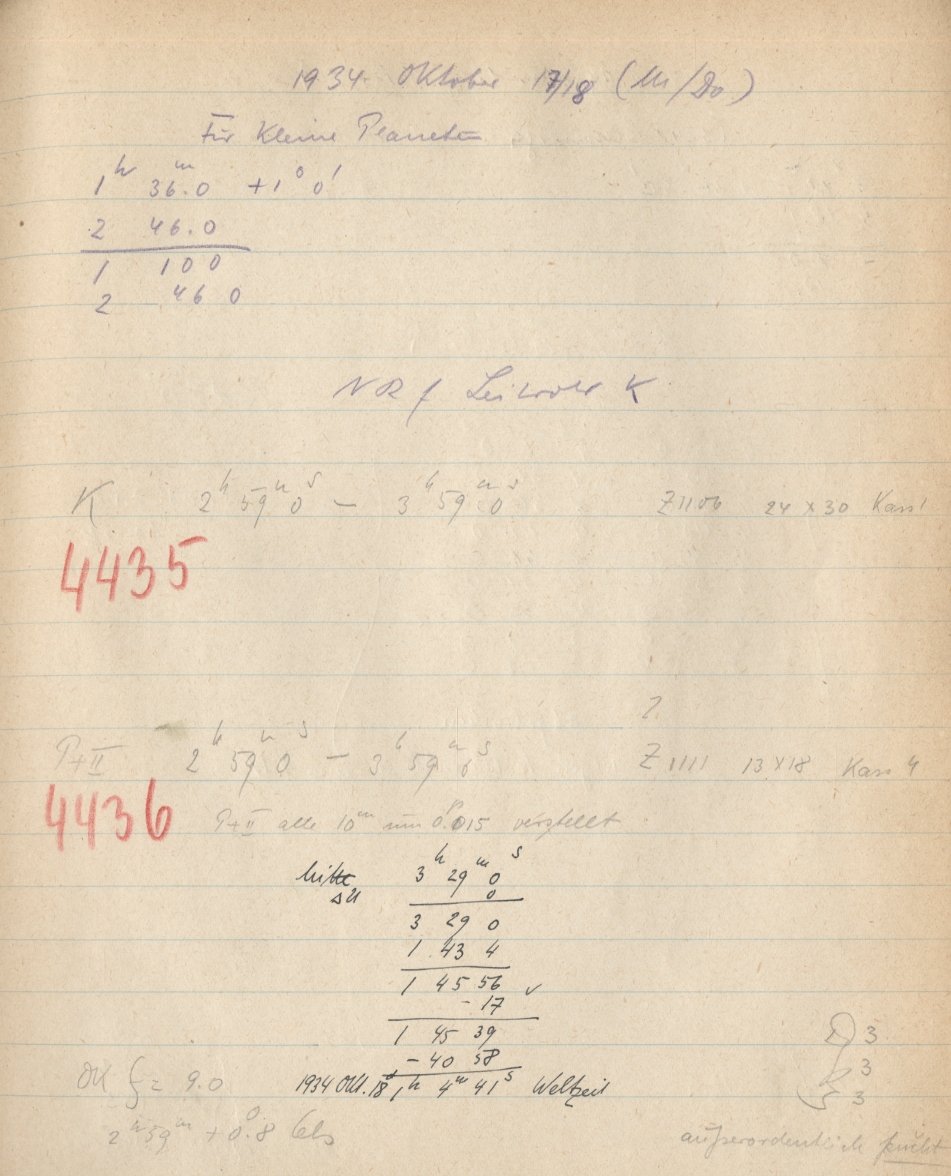 1934 Oktober 17/18 (Mi/Do)
Für Kleine Planeten
1ʰ 36.ᵐ0 +1° 0'
2 46.0
1 10 0
2 46 0
NR f K
K 2ʰ 59ᵐ 0ˢ — 3ʰ 59ᵐ 0ˢ Z1106 24 x 30 Kass 1
4435
?
P+II 2ʰ 59ᵐ 0ˢ — 3ʰ 59ᵐ 0ˢ Z1111 13 x 18 Kass 4
4436 P+II alle 10ᵐ um 0.015 verstellt
3ʰ 29ᵐ 0ˢ
su 0
3 29 0
1 43 4
1 45 56 ✓
- 17
1 45 39
- 40 58
1934 Okt. 18ᵈ 1ʰ 4ᵐ 41ˢ Weltzeit
OK = 9.0
2ʰ 59ᵐ +0.8
3
3
3
außerordentlich feucht